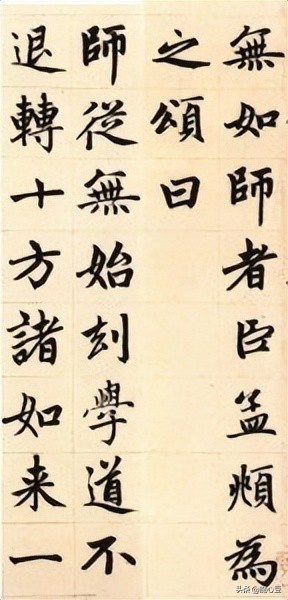 無如師者臣孟頫為
之頌曰
師從無始刦學道不
退轉十方諸如来一
头条